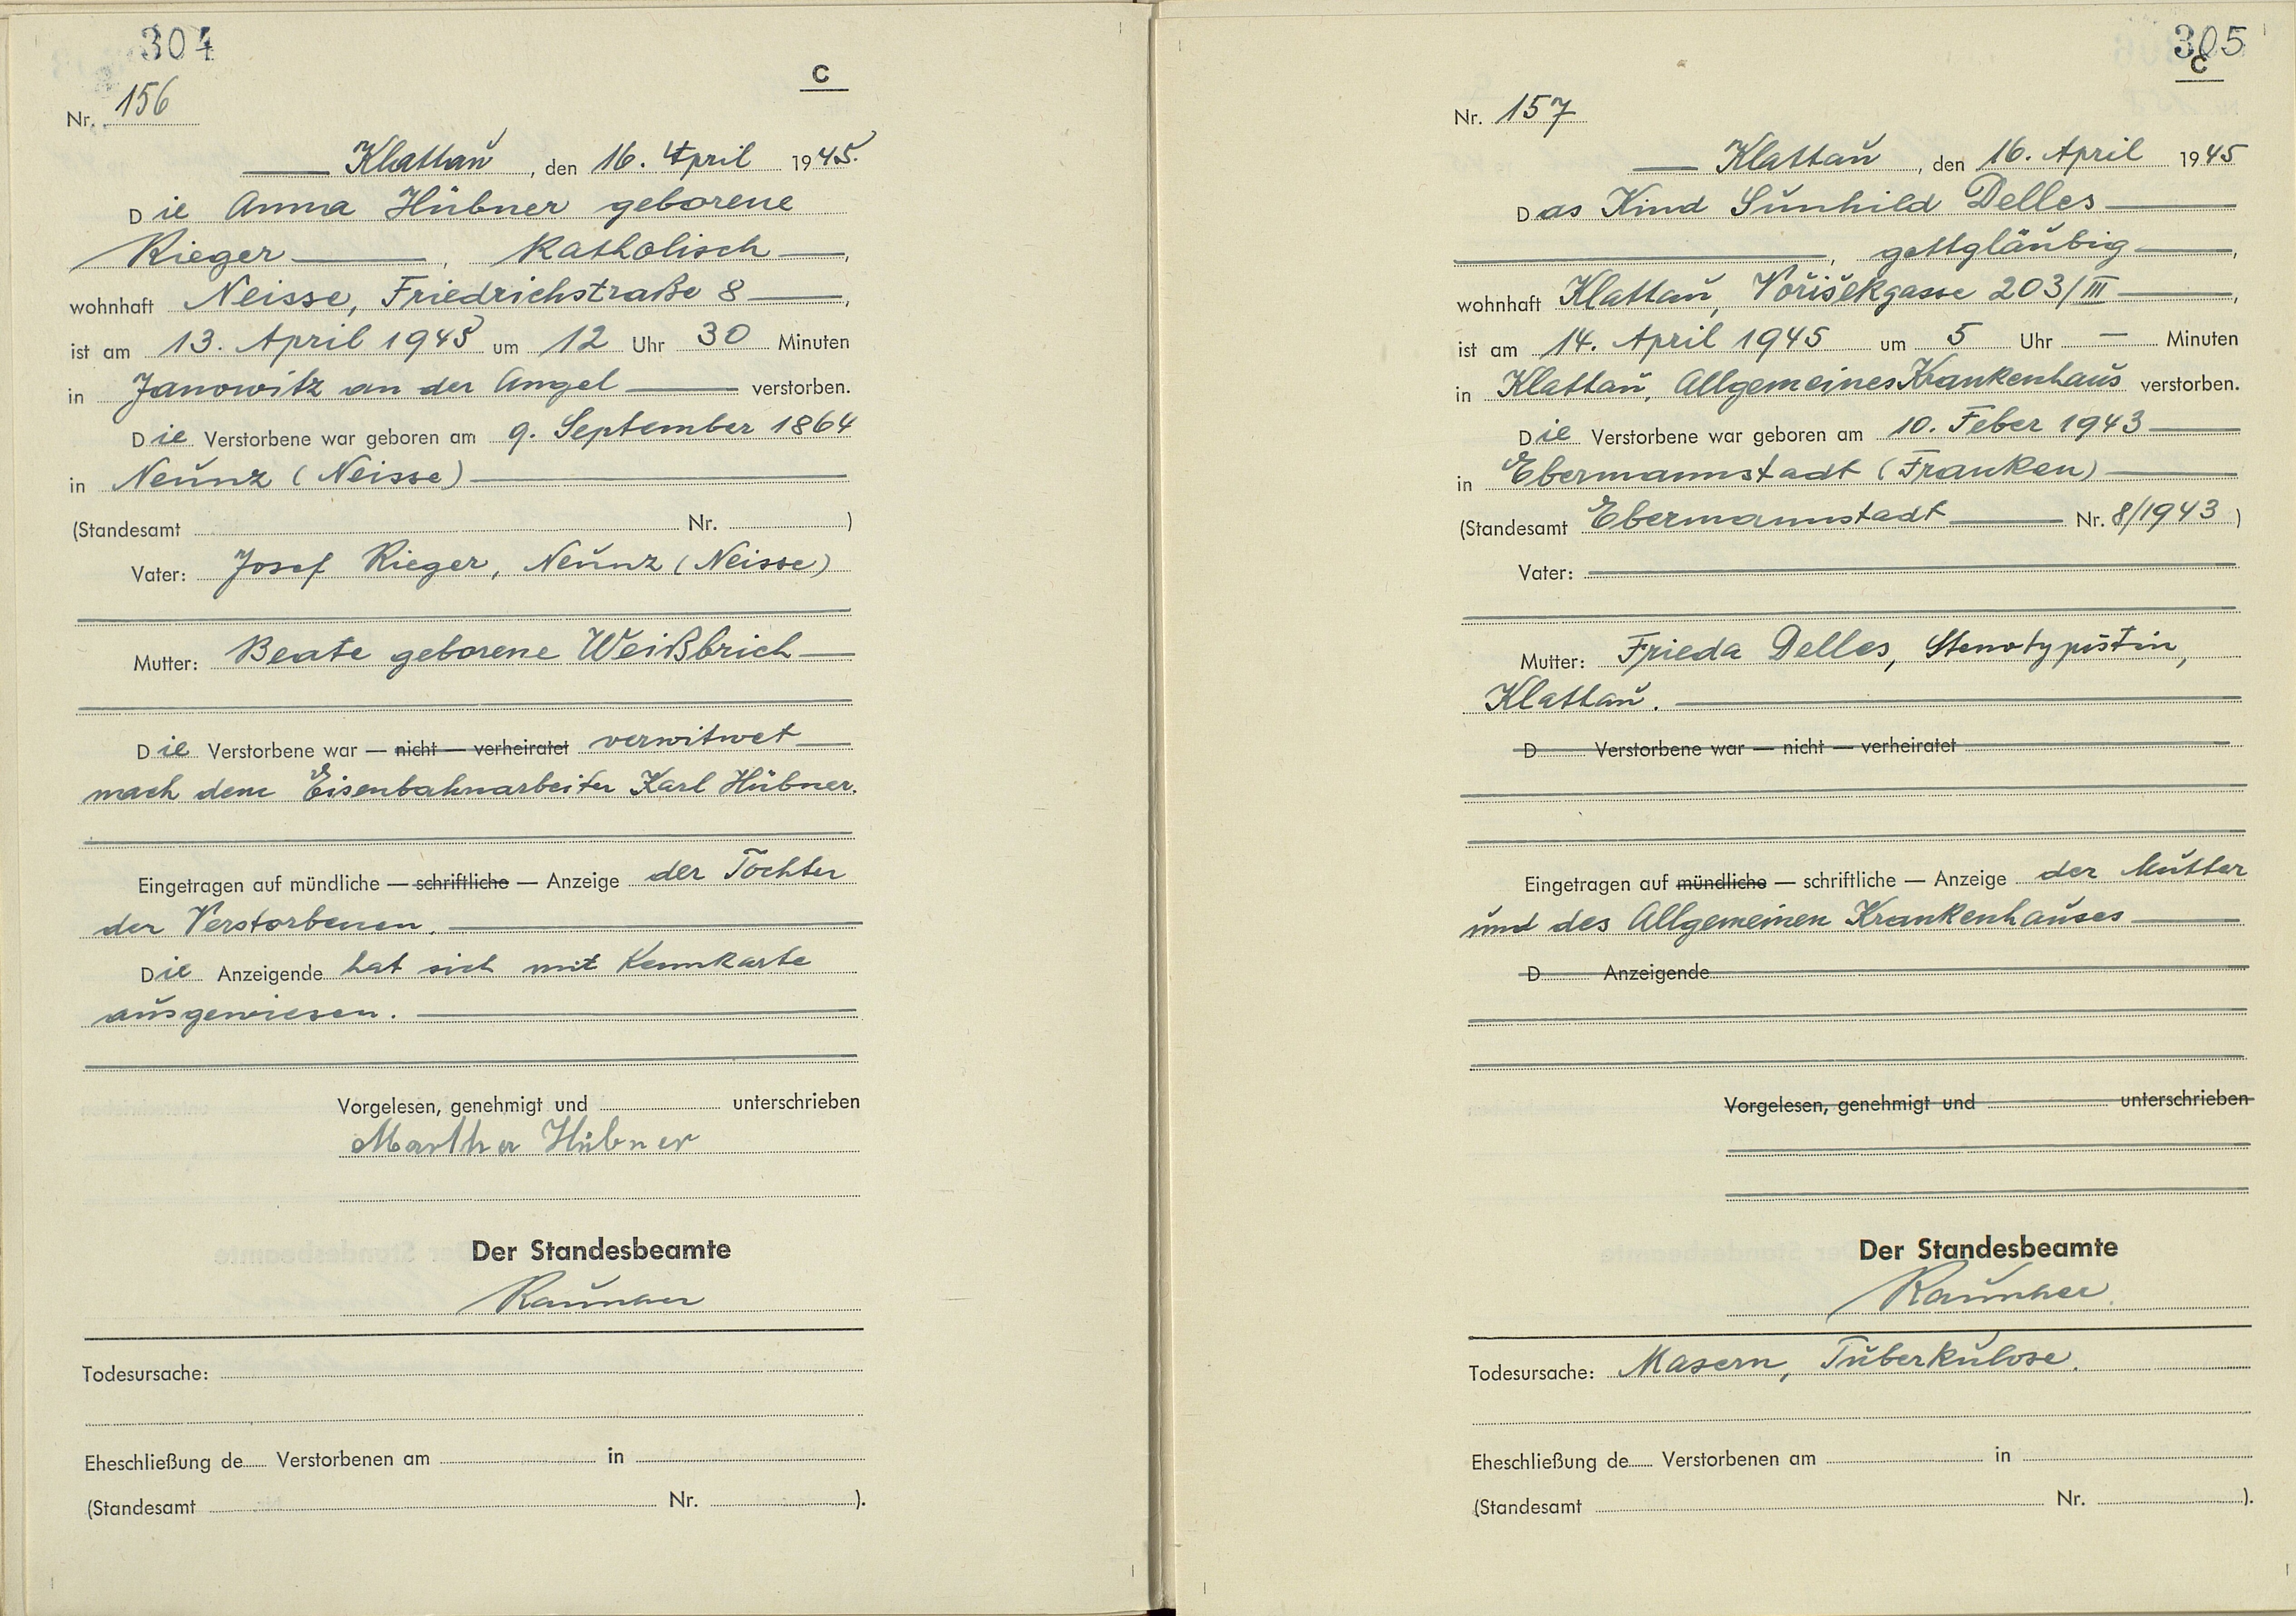 304
C
Nr. 156
Klattau, den 16. April 1945.
Die Anna Hübner geborene
Rieger, katholisch,
wohnhaft Neisse, Friedrichstraße 8,
ist am 13. April 1945 um 12 Uhr 30 Minuten
in Janowitz an der Angel verstorben.
Die Verstorbene war geboren am 9. September 1864
in Neunz (Neisse)
(Standesamt Nr. )
Vater: Josef Rieger, Neunz (Neisse)
Mutter: Beate geborene Weißbrich
Die Verstorbene war — nicht — verheiratet verwitwet
nach dem Eisenbahnarbeiter Karl Hübner.
Eingetragen auf mündliche — schriftliche — Anzeige der Tochter
der Verstorbenen.
Die Anzeigende hat sich mit Kennkarte
ausgewiesen.
Vorgelesen, genehmigt und unterschrieben
Martha Hübner
Der Standesbeamte
Todesursache:
Eheschließung de Verstorbenen am in
(Standesamt Nr. ).
305
C
Nr. 157
Klattau, den 16. April 1945
Das Kind Sunhild Delles
, gottgläubig,
wohnhaft Klattau, Voříšekgasse 203/III,
ist am 14. April 1945 um 5 Uhr — Minuten
in Klattau, Allgemeines Krankenhaus verstorben.
Die Verstorbene war geboren am 10. Feber 1943
in Ebermannstadt (Franken)
(Standesamt Ebermannstadt Nr. 8/1943)
Vater:
Mutter: Frieda Delles, Stenotypistin,
Klattau.
D Verstorbene war — nicht — verheiratet
Eingetragen auf mündliche — schriftliche — Anzeige der Mutter
und des Allgemeinen Krankenhauses
D Anzeigende
Vorgelesen, genehmigt und unterschrieben
Der Standesbeamte
Todesursache: Masern, Tuberkulose.
Eheschließung de Verstorbenen am in
(Standesamt Nr. ).